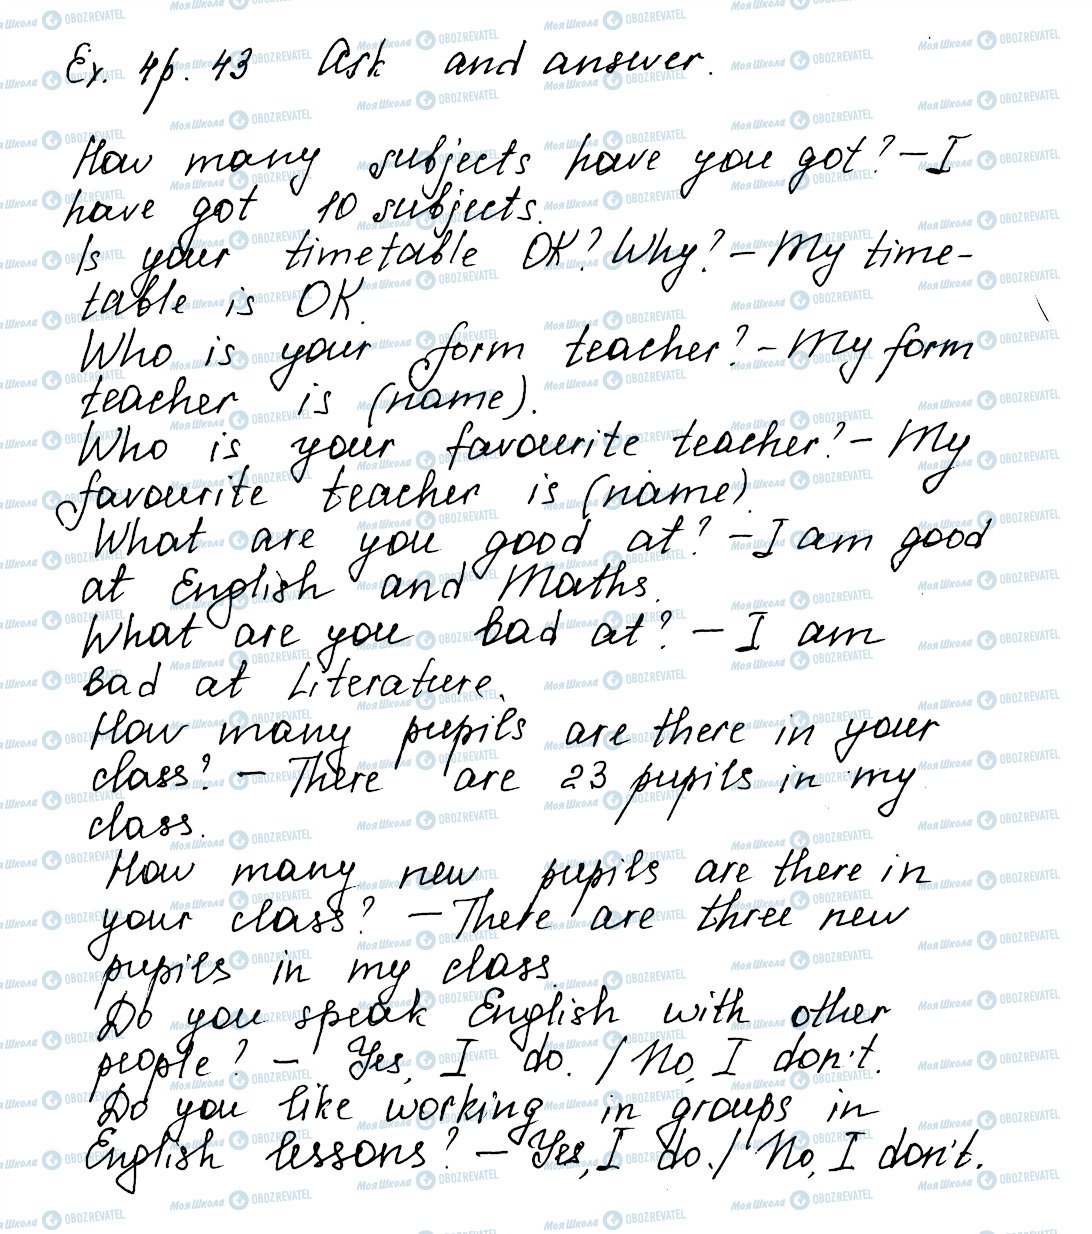 Ex. 4 p. 43 Ask and answer.
How many subjects have you got? – I
have got 10 subjects.
Is your timetable OK? Why? – My time-
table is OK.
Who is your form teacher? – My form
teacher is (name).
Who is your favourite teacher? – My
favourite teacher is (name).
What are you good at? – I am good
at English and Maths.
What are you bad at? – I am
bad at Literature.
How many pupils are there in your
class? – There are 23 pupils in my
class.
How many new pupils are there in
your class? – There are three new
pupils in my class.
Do you speak English with other
people? – Yes, I do. / No, I don't.
Do you like working in groups in
English lessons? – Yes, I do. / No, I don't.
МояШкола OBOZREVATEL